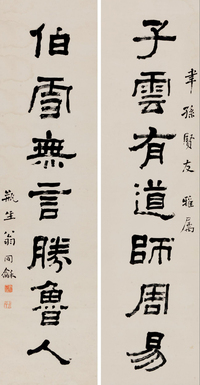 孫賢友雅屬
子雲有道師周易
伯雪無言勝魯人
瓶生翁同龢